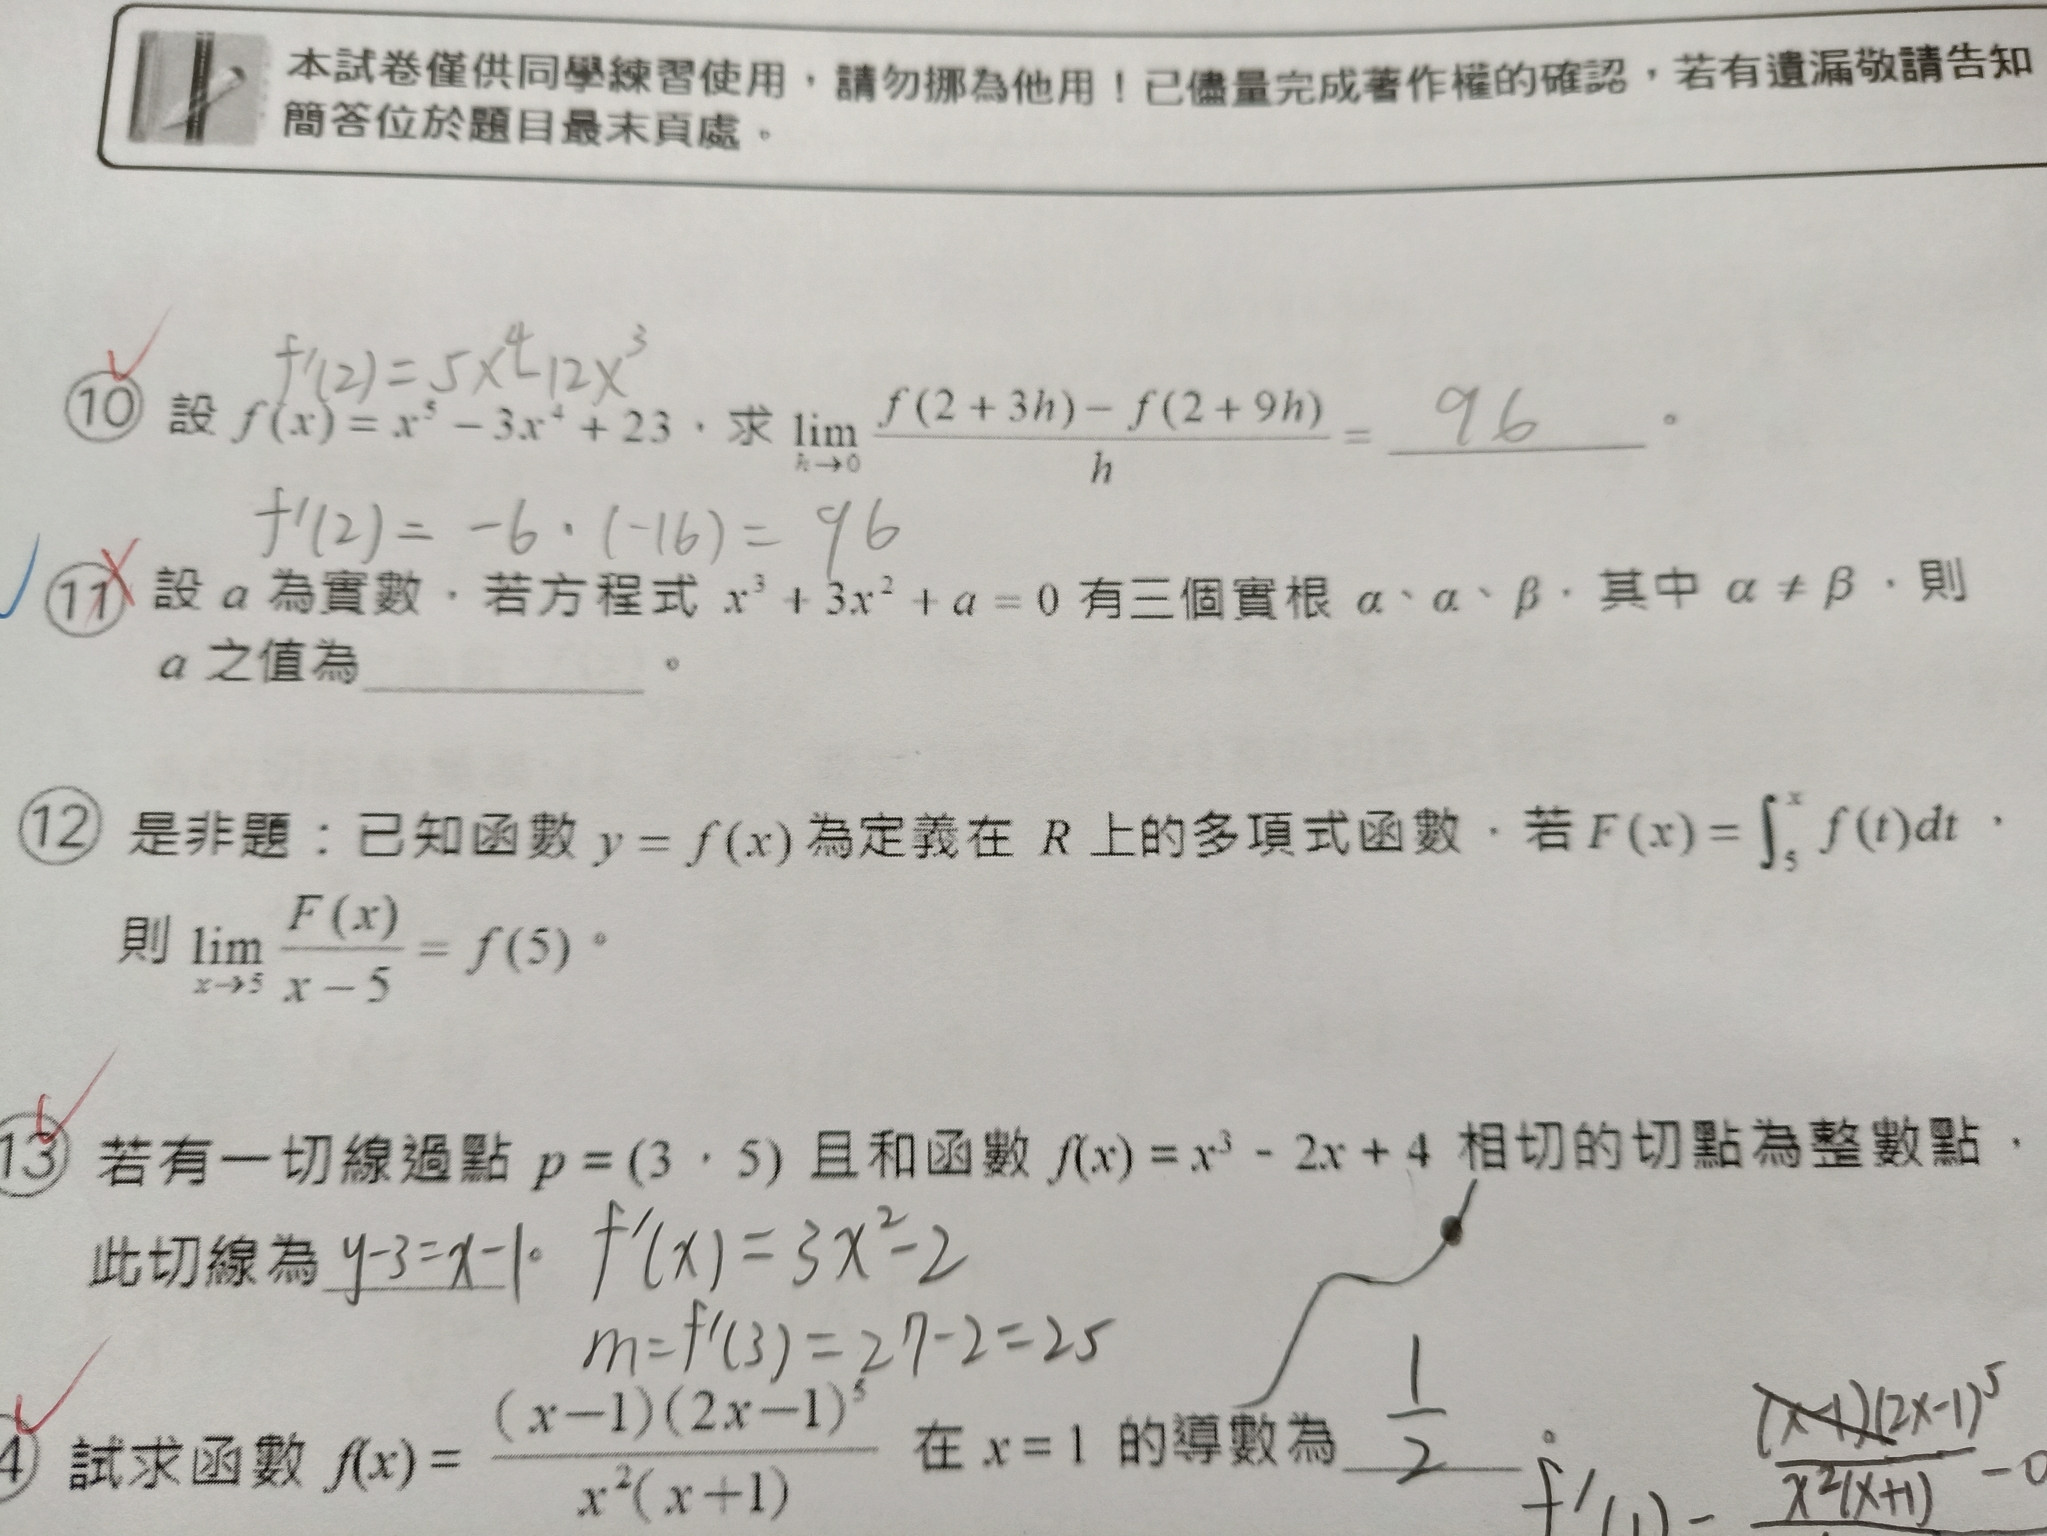 本試卷僅供同學練習使用，請勿挪為他用！已儘量完成著作權的確認，若有遺漏敬請告知
簡答位於題目最末頁處。
f'(2)=5x⁴-12x³
⑩ 設 f(x) = x⁵ − 3x⁴ + 23，求 lim_{h→0} (f(2+3h) − f(2+9h))/h = 96 。
f'(2) = -6・(-16) = 96
⑪ 設 a 為實數，若方程式 x³ + 3x² + a = 0 有三個實根 α、α、β，其中 α ≠ β，則
a 之值為______。
⑫ 是非題：已知函數 y = f(x) 為定義在 R 上的多項式函數，若 F(x) = ∫₅ˣ f(t)dt，
則 lim_{x→5} F(x)/(x−5) = f(5)。
13 若有一切線過點 p = (3，5) 且和函數 f(x) = x³ - 2x + 4 相切的切點為整數點，
此切線為 y-3=x-1。 f'(x)=3x²-2
m=f'(3)=27-2=25
4 試求函數 f(x) = (x−1)(2x−1)⁵/(x²(x+1)) 在 x = 1 的導數為 1/2 。
f'(1) = (x-1)(2x-1)⁵/(x²(x+1)) -0